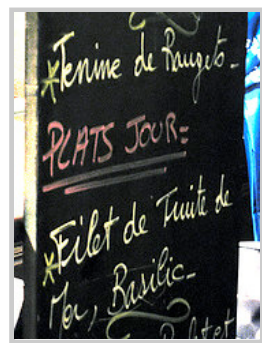 *Terrine de Rougets-
PLATS JOUR=
*Filet de Truite de
Mer, Basilic-